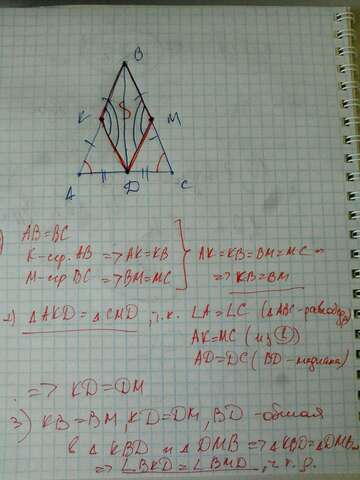 B
K
M
A
D
C
) AB=BC
K-сер. AB => AK=KB
M-сер BC => BM=MC
AK=KB=BM=MC =
=> KB=BM
2) △AKD=△CMD, т.к. ∠A=∠C (△ABC-
AK=MC (из ①)
AD=DC (BD-медиана)
=> KD=DM
3) KB=BM, KD=DM, BD-общая
в △KBD и △DMB => △KBD=△DMB
=> ∠BKD=∠BMD, ч.т.д.